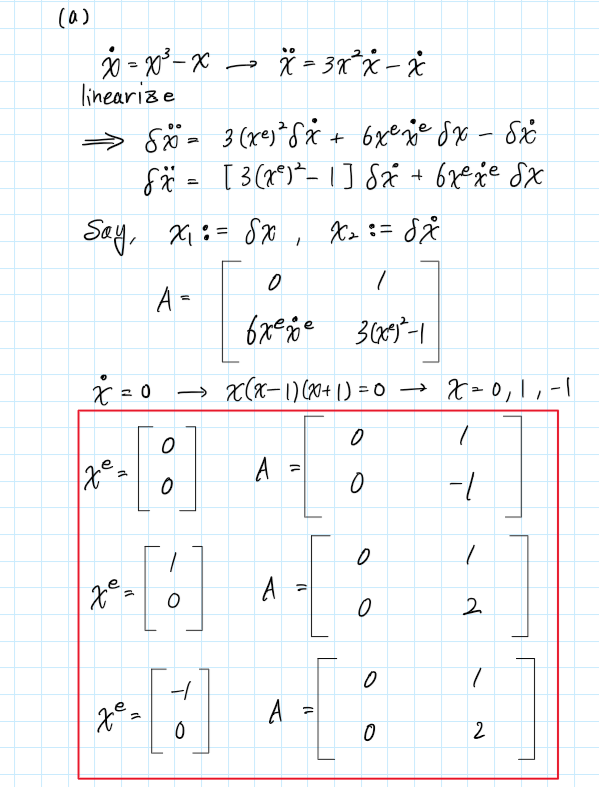 (a)
ẋ = x³ − x → ẍ = 3x²ẋ − ẋ
linearize
⟹ δẍ = 3(xᵉ)²δẋ + 6xᵉẋᵉ δx − δẋ
δẍ = [3(xᵉ)² − 1] δẋ + 6xᵉẋᵉ δx
Say, x₁ := δx , x₂ := δẋ
A = [ 0 1
6xᵉẋᵉ 3(xᵉ)²−1 ]
ẋ = 0 → x(x−1)(x+1) = 0 → x = 0, 1, −1
xᵉ = [ 0 A = [ 0 1
0 ] 0 −1 ]
xᵉ = [ 1 A = [ 0 1
0 ] 0 2 ]
xᵉ = [ −1 A = [ 0 1
0 ] 0 2 ]